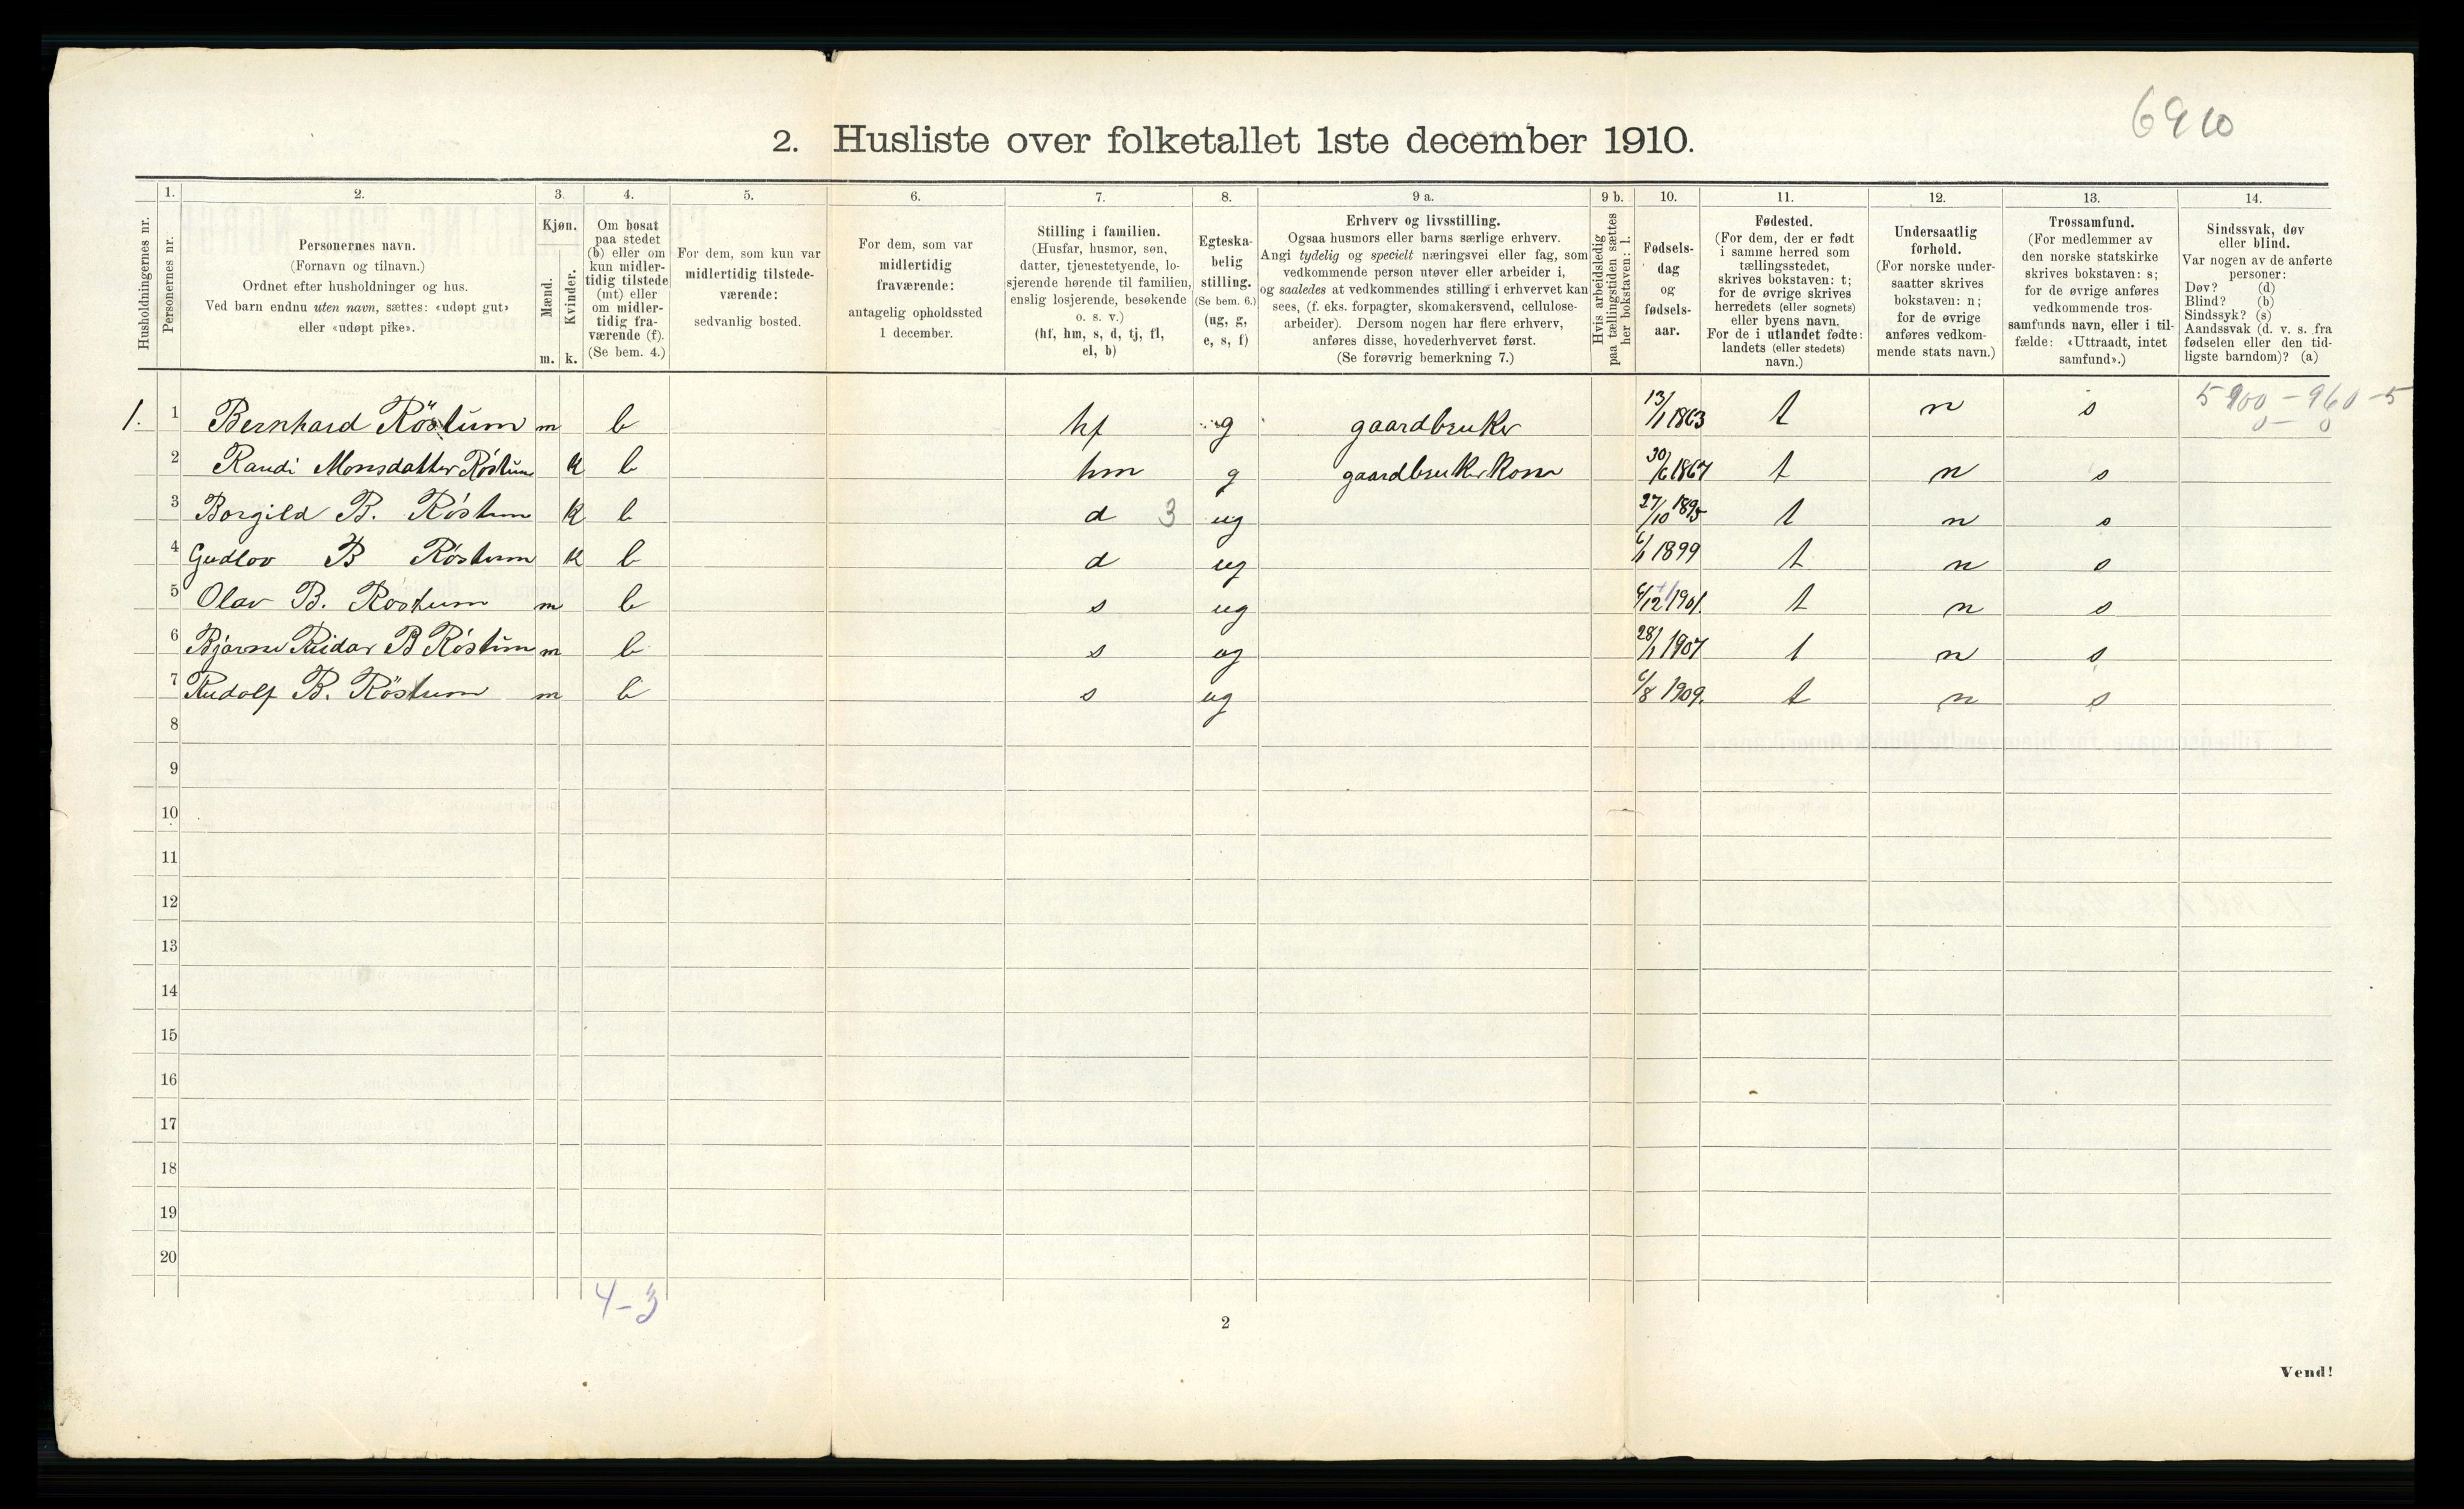 6910
2. Husliste over folketallet 1ste december 1910.
Husholdningernes nr.
1.
Personernes nr.
2.
Personernes navn.
(Fornavn og tilnavn.)
Ordnet efter husholdninger og hus.
Ved barn endnu uten navn, sættes: «udøpt gut»
eller «udøpt pike».
3.
Kjøn.
Mænd.
Kvinder.
m. k.
4.
Om bosat
paa stedet
(b) eller om
kun midler-
tidig tilstede
(mt) eller
om midler-
tidig fra-
værende (f).
(Se bem. 4.)
5.
For dem, som kun var
midlertidig tilstede-
værende:
sedvanlig bosted.
6.
For dem, som var
midlertidig
fraværende:
antagelig opholdssted
1 december.
7.
Stilling i familien.
(Husfar, husmor, søn,
datter, tjenestetyende, lo-
sjerende hørende til familien,
enslig losjerende, besøkende
o. s. v.)
(hf, hm, s, d, tj, fl,
el, b)
8.
Egteska-
belig
stilling.
(Se bem. 6.)
(ug, g,
e, s, f)
9 a.
Erhverv og livsstilling.
Ogsaa husmors eller barns særlige erhverv.
Angi tydelig og specielt næringsvei eller fag, som
vedkommende person utøver eller arbeider i,
og saaledes at vedkommendes stilling i erhvervet kan
sees, (f. eks. forpagter, skomakersvend, cellulose-
arbeider). Dersom nogen har flere erhverv,
anføres disse, hovederhvervet først.
(Se forøvrig bemerkning 7.)
9 b.
Hvis arbeidsledig
paa tællingstiden sættes
her bokstaven: l.
10.
Fødsels-
dag
og
fødsels-
aar.
11.
Fødested.
(For dem, der er født
i samme herred som
tællingsstedet,
skrives bokstaven: t;
for de øvrige skrives
herredets (eller sognets)
eller byens navn.
For de i utlandet fødte:
landets (eller stedets)
navn.)
12.
Undersaatlig
forhold.
(For norske under-
saatter skrives
bokstaven: n;
for de øvrige
anføres vedkom-
mende stats navn.)
13.
Trossamfund.
(For medlemmer av
den norske statskirke
skrives bokstaven: s;
for de øvrige anføres
vedkommende tros-
samfunds navn, eller i til-
fælde: «Uttraadt, intet
samfund».)
14.
Sindssvak, døv
eller blind.
Var nogen av de anførte
personer:
Døv? (d)
Blind? (b)
Sindssyk? (s)
Aandssvak (d. v. s. fra
fødselen eller den tid-
ligste barndom)? (a)
5900 - 960 - 5
0 - 0
1. 1 Bernhard Röstum m b hf g gaardbruker 13/1 1863 t n s
2 Randi Monsdatter Röstum k b hm g gaardbrukerkone 30/6 1867 t n s
3 Borgild B. Röstum k b d 3 ug 27/10 1895 t n s
4 Gudlov B Röstum k b d ug 6/1 1899 t n s
5 Olav B. Röstum m b s ug 6/12 1901. t n s
6 Bjarne Reidar B Röstum m b s ug 28/1 1907 t n s
7 Rudolf B. Röstum m b s ug 6/8 1909. t n s
8
9
10
11
12
13
14
15
16
17
18
19
20
4-3
2
Vend!